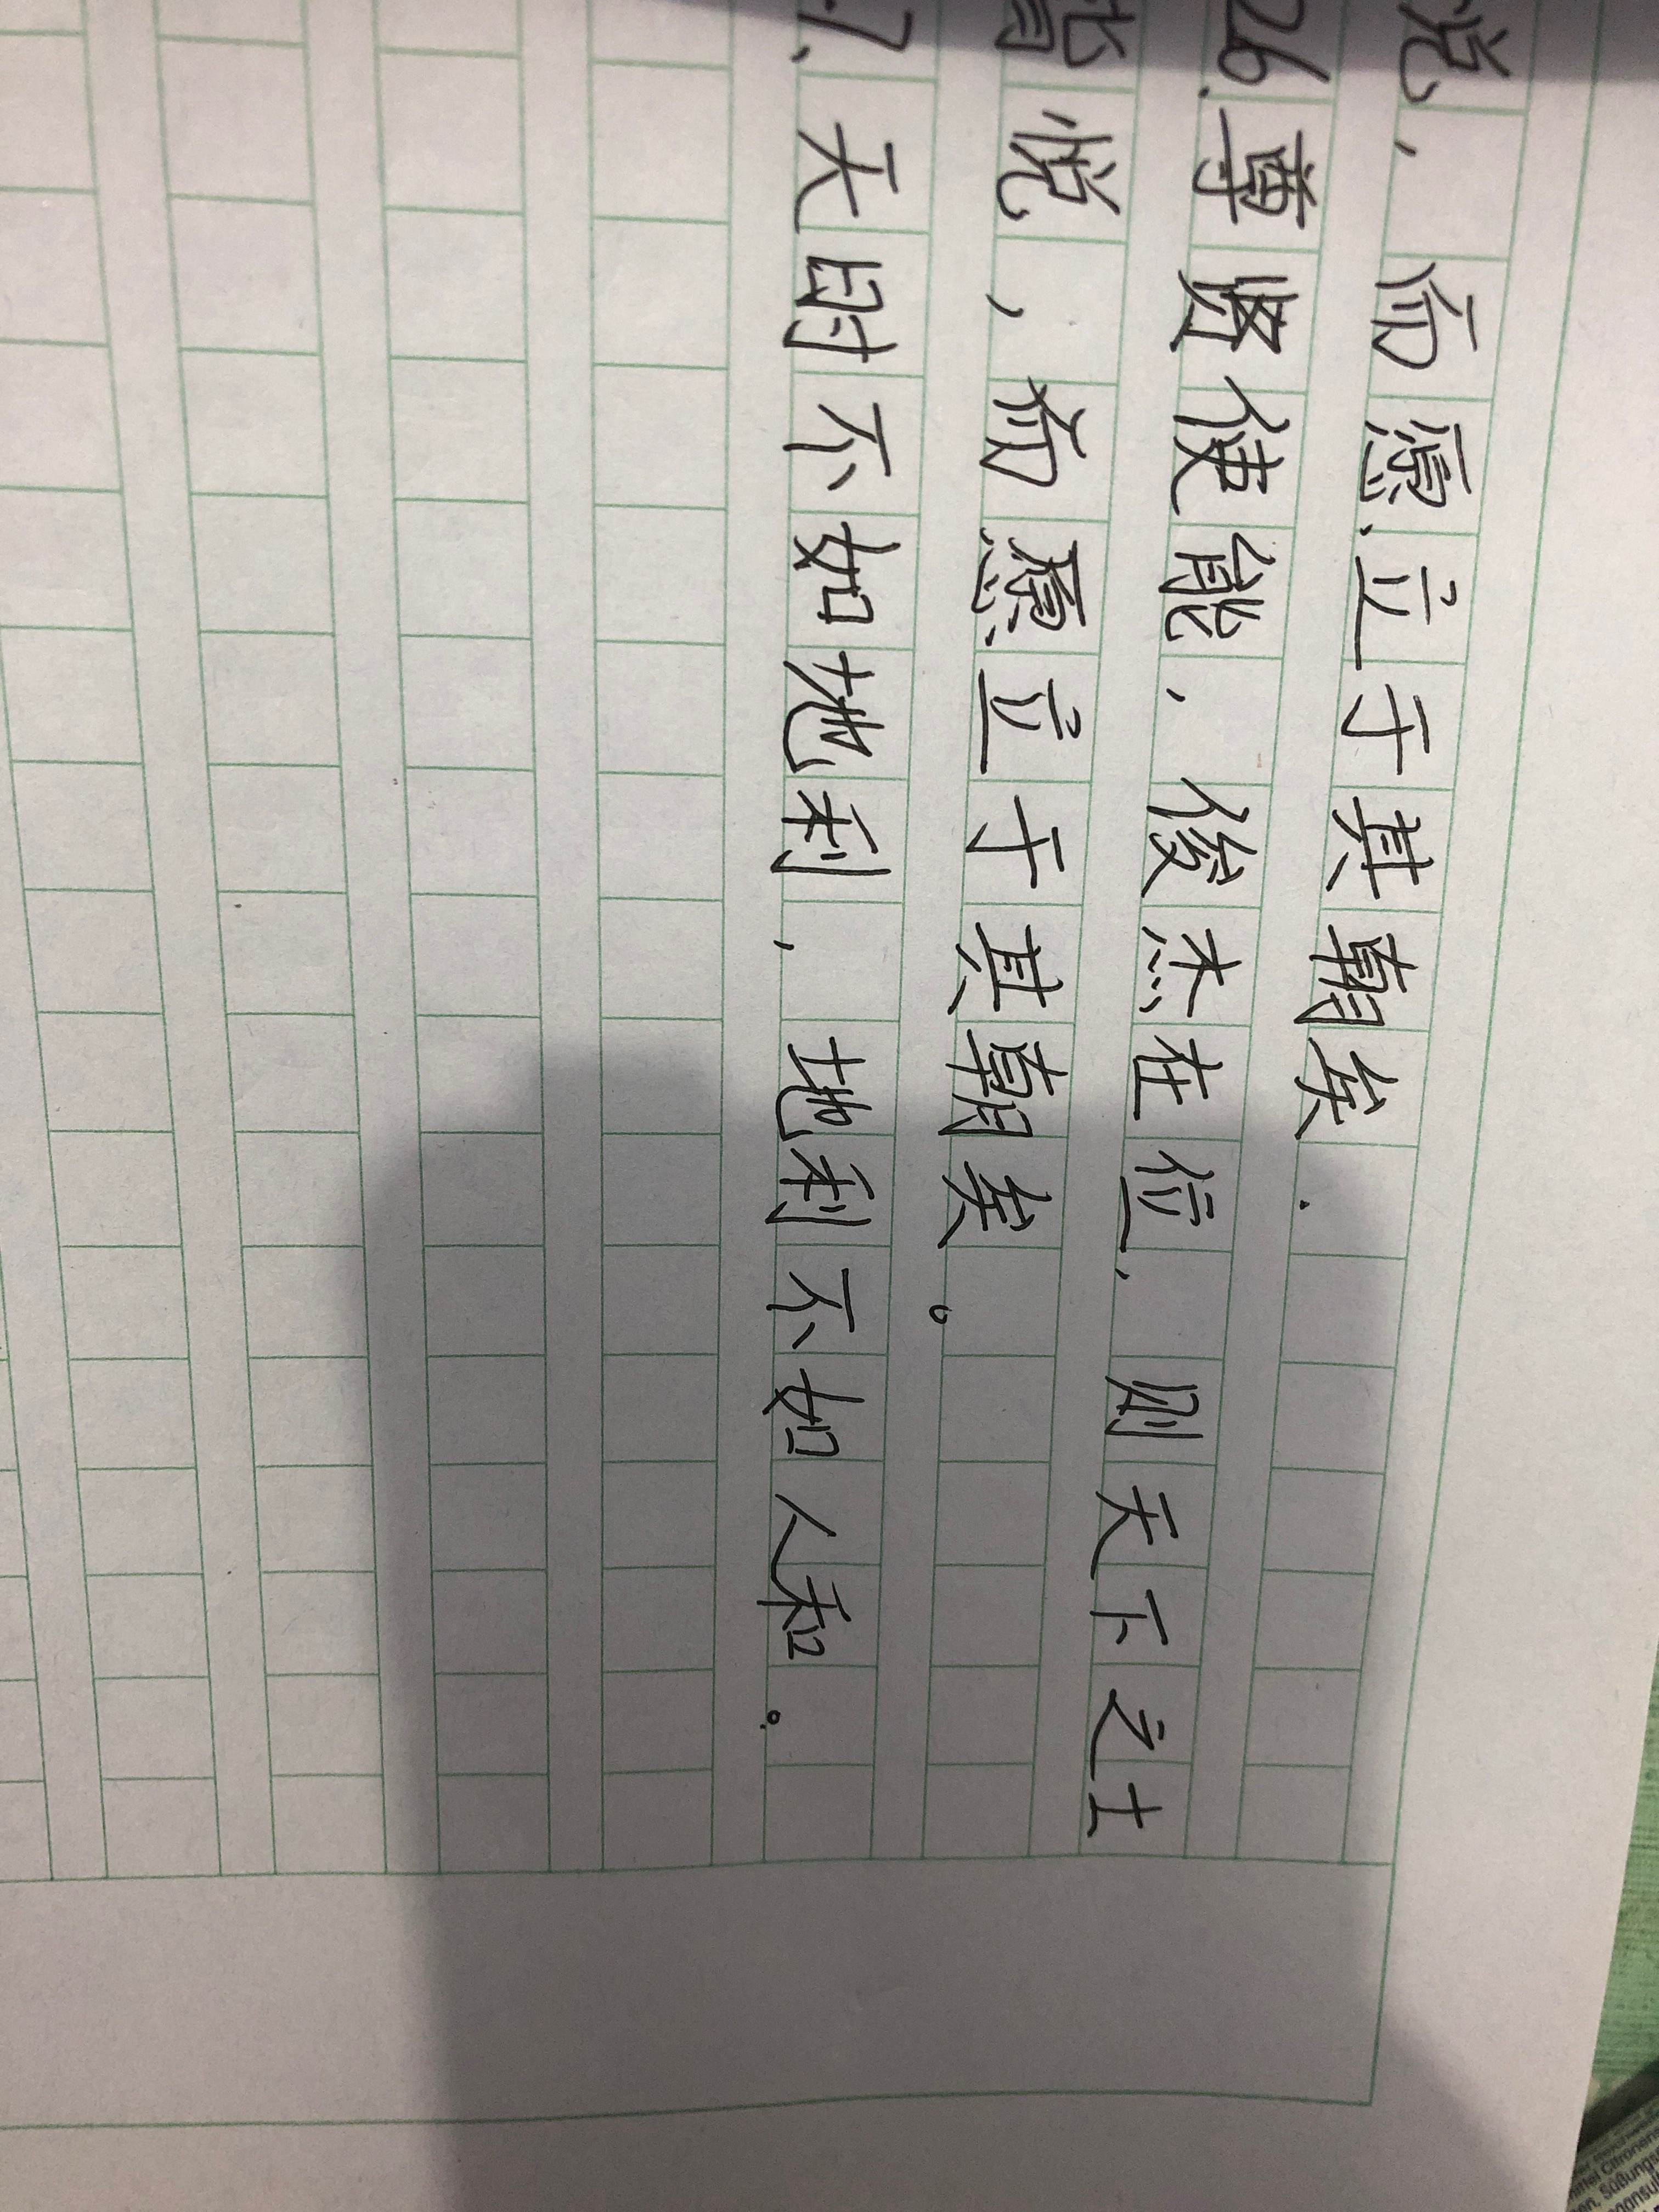 悦，而愿立于其朝矣.
26.尊贤使能，俊杰在位，则天下之士
皆悦，而愿立于其朝矣。
7、天时不如地利，地利不如人和。